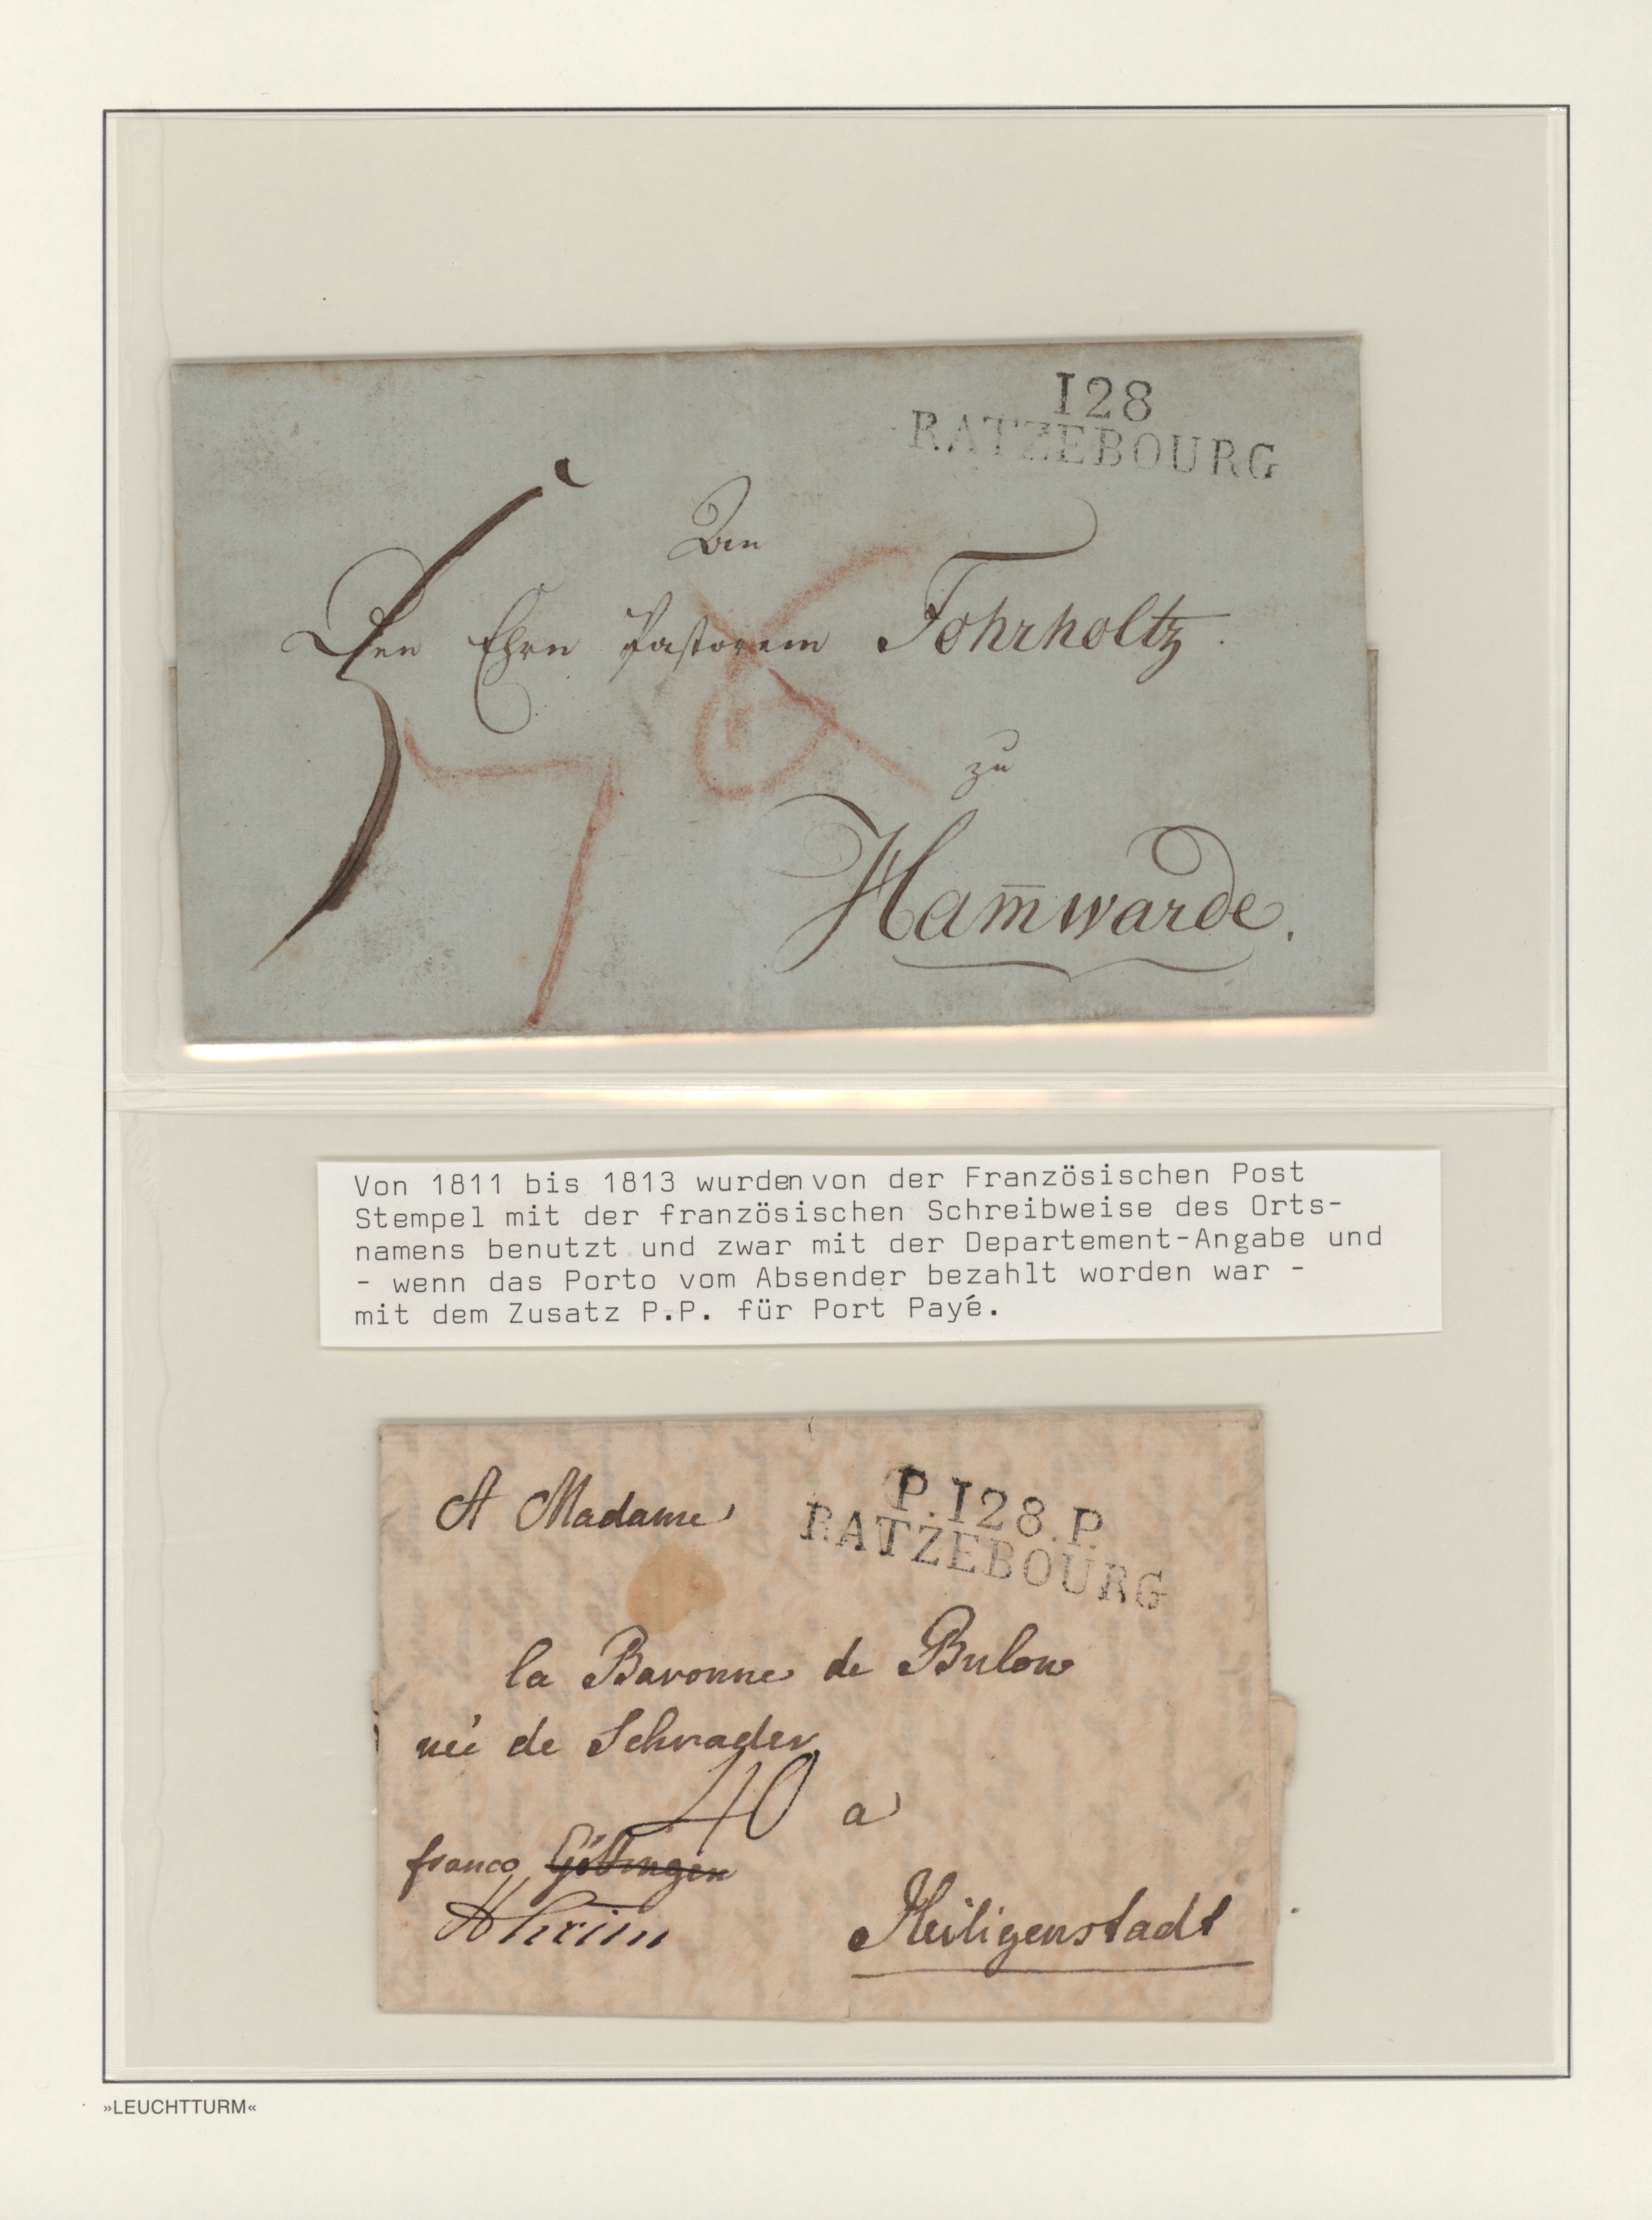 128
RATZEBOURG
An
Den Ehrn Pastorem Fohrholtz.
zu
Ham̄warde.
Von 1811 bis 1813 wurden von der Französischen Post
Stempel mit der französischen Schreibweise des Orts-
namens benutzt und zwar mit der Departement-Angabe und
- wenn das Porto vom Absender bezahlt worden war -
mit dem Zusatz P.P. für Port Payé.
A Madame
P.128.P.
RATZEBOURG
la Baronne de Bulow
née de Schrader
40 a
franco Göttingen
Heiligenstadt
»LEUCHTTURM«